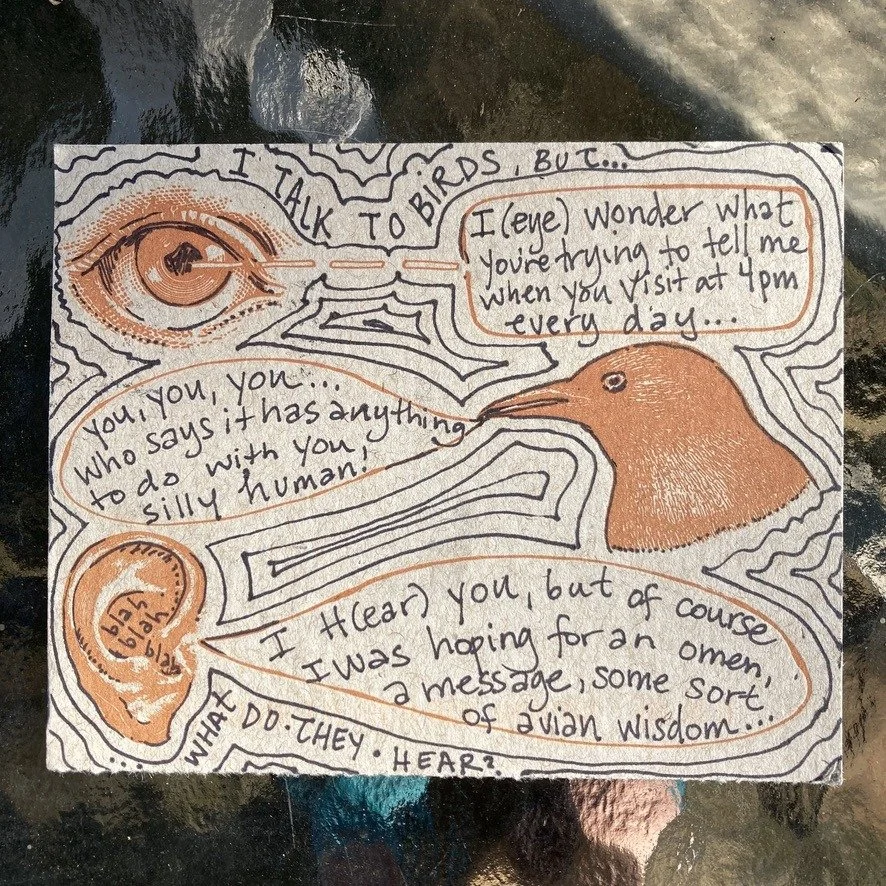 I TALK TO BIRDS, BUT...
I (eye) wonder what
you're trying to tell me
when you visit at 4pm
every day...
you, you, you...
who says it has anything
to do with you
silly human!
blah
blah
blah
I H(ear) you, but of course
I was hoping for an omen,
a message, some sort
of avian wisdom...
...WHAT DO•THEY•HEAR?